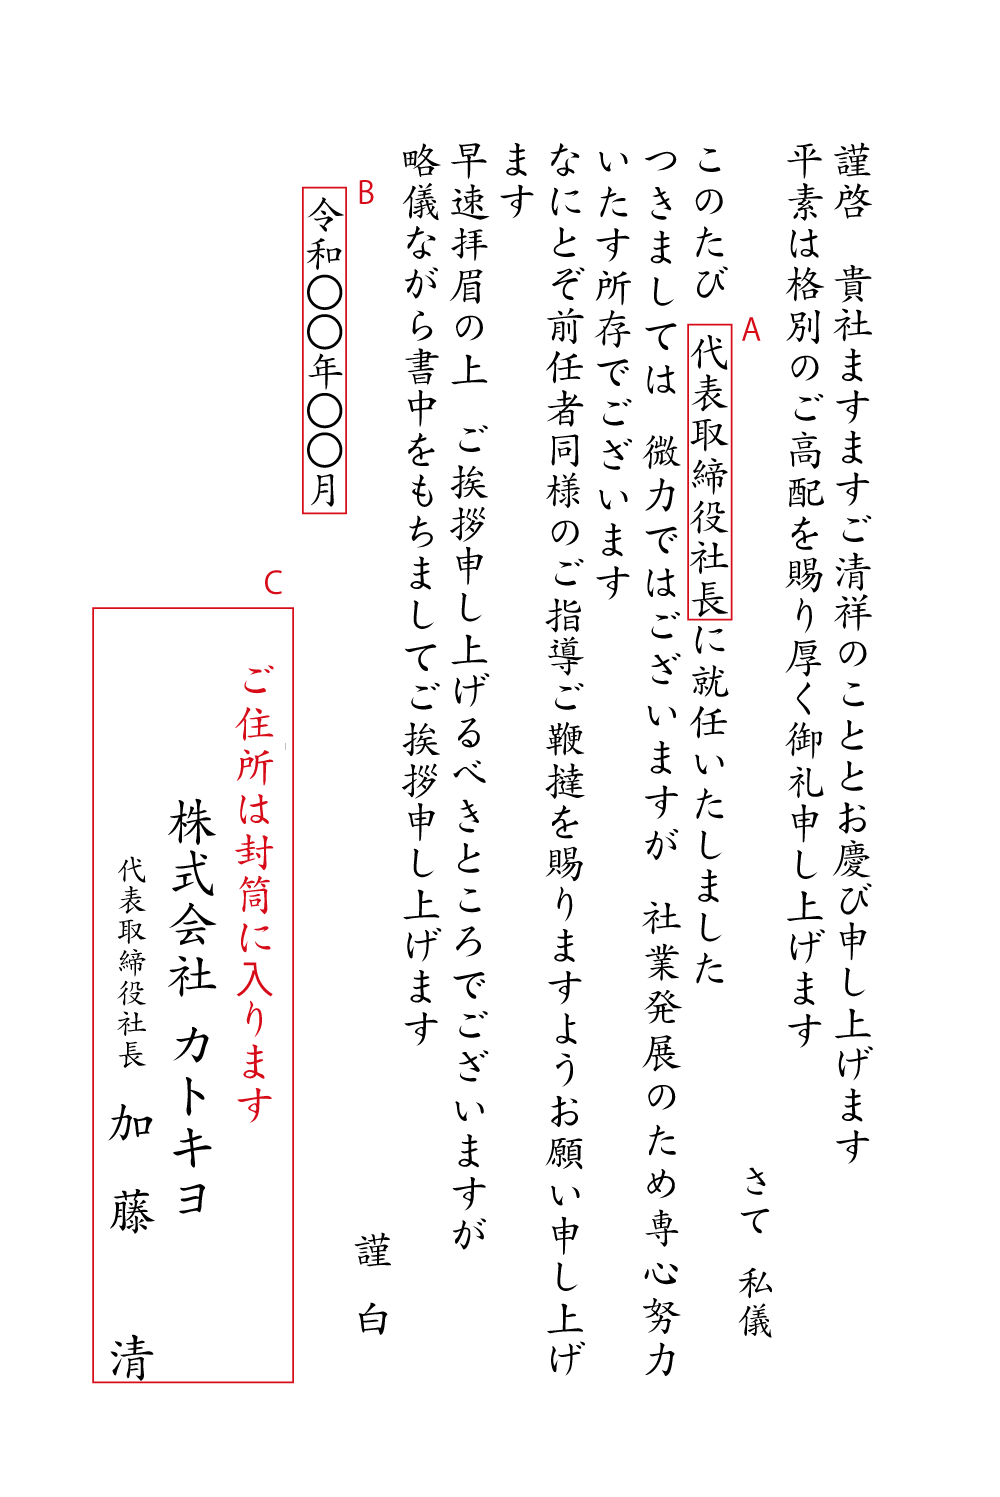 謹啓　貴社ますますご清祥のこととお慶び申し上げます
平素は格別のご高配を賜り厚く御礼申し上げます
さて　私儀
A
このたび　代表取締役社長に就任いたしました
つきましては　微力ではございますが　社業発展のため専心努力
いたす所存でございます
なにとぞ前任者同様のご指導ご鞭撻を賜りますようお願い申し上げ
ます
早速拝眉の上　ご挨拶申し上げるべきところでございますが
略儀ながら書中をもちましてご挨拶申し上げます
謹　白
B
令和〇〇年〇〇月
C
ご住所は封筒に入ります
株式会社 カトキヨ
代表取締役社長　加　藤　　清